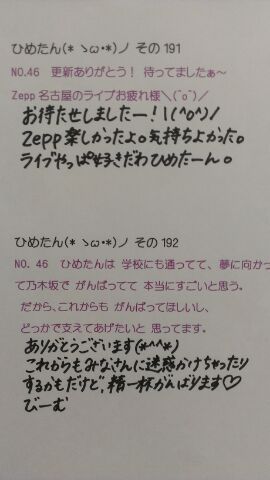 ひめたん(* ゝω・*)ノ その191
NO.46　更新ありがとう! 待ってましたぁ〜
Zepp名古屋のライブお疲れ様＼(^o^)／
お待たせしましたー!\(^o^)/
Zepp楽しかったよ。気持ちよかった。
ライブやっぱ好きだわひめたーん。
ひめたん(* ゝω・*)ノ その192
NO. 46　ひめたんは 学校にも通ってて、 夢に向かっ
て乃木坂で がんばってて 本当にすごいと思う。
だから、これからも がんばってほしいし、
どっかで支えてあげたいと 思ってます。
ありがとうございます(*^^*)
これからもみなさんに迷惑かけちゃったり
するかもだけど、精一杯がんばります♡
びーむ